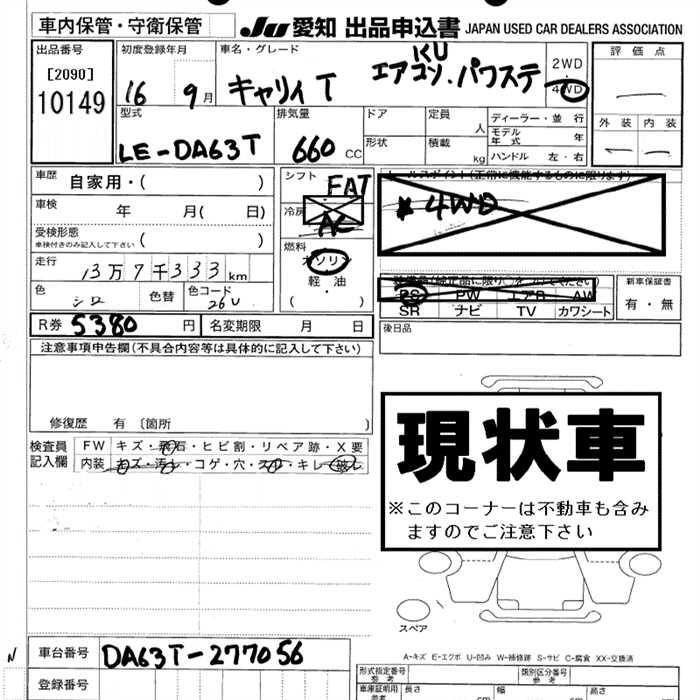 車内保管・守衛保管
JU 愛知 出品申込書 JAPAN USED CAR DEALERS ASSOCIATION
出品番号
[2090]
10149
初度登録年月
16 9月
車名・グレード
キャリィ T
KU
エアコン・パワステ
2WD
4WD
評価点
外装 内装
型式
LE-DA63T
排気量
660 CC
ドア
形状
定員
人
積載
kg
ディーラー・並行
モデル年式 年
ハンドル 左・右
車歴 自家用・( )
車検 年 月( 日)
受検形態
車検付きのみ記入して下さい ( )
走行 13万7千333km
色 シロ 色替 色コード 26U
シフト FAT
冷房 AC
燃料
ガソリン
軽油
( ・ )
セールスポイント(正常に機能するものに限ります)
4WD
PS PW エアB AW
SR ナビ TV カワシート
新車保証書
有・無
R券 5380円 名変期限 月 日
後日品
注意事項申告欄(不具合内容等は具体的に記入して下さい)
修復歴 有〔箇所 〕
検査員記入欄
FW キズ・飛石・ヒビ割・リペア跡・X要
内装 キズ・汚れ・コゲ・穴・スレ・キレ・破れ
現状車
※このコーナーは不動車も含み
ますのでご注意下さい
スペア
A-キズ E-エクボ U-凹み W-補修跡 S-サビ C-腐食 XX-交換済
N
車台番号 DA63T-277056
登録番号
形式指定番号
参考
類別区分番号
参考
車庫証明用
参考
長さ
cm
幅
cm
高さ
cm